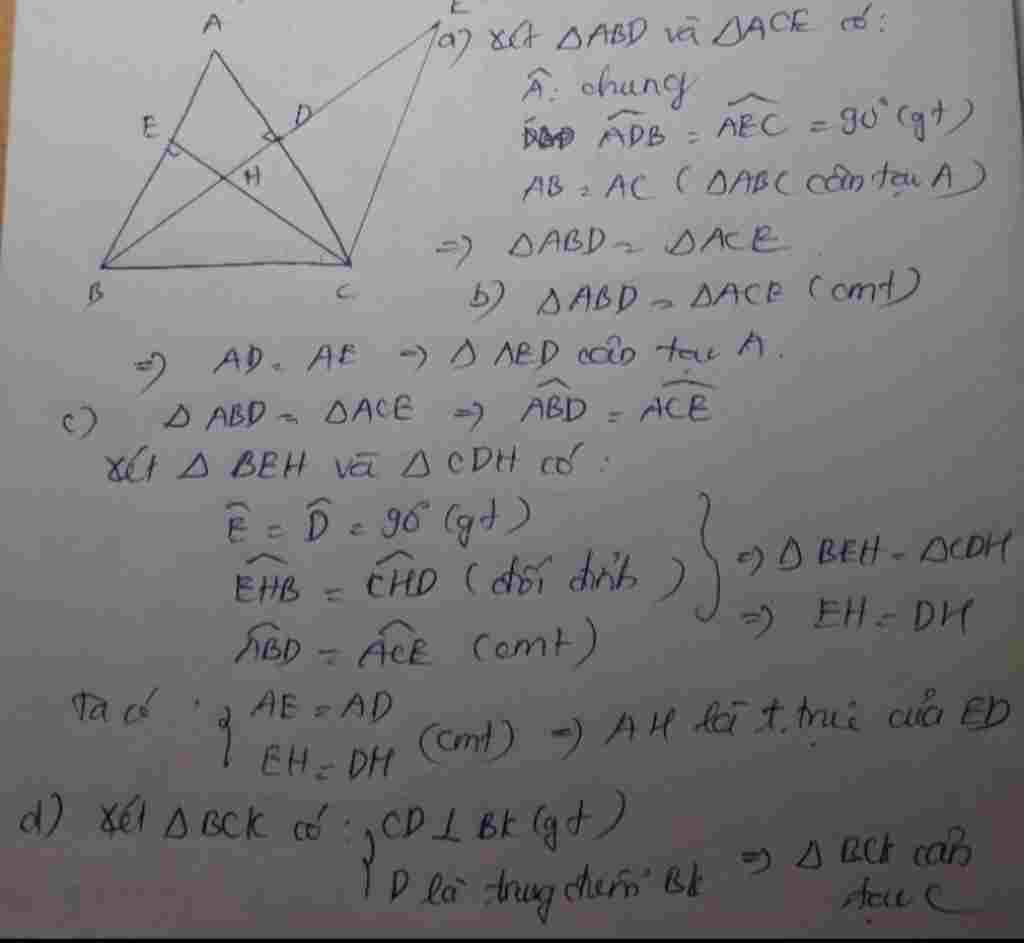 A
E
D
H
B
C
a) xét ΔABD và ΔACE có:
Â: chung
ADB = AEC = 90° (gt)
AB = AC (ΔABC cân tại A)
=> ΔABD = ΔACE
b) ΔABD = ΔACE (cmt)
=> AD = AE => Δ AED cân tại A.
c) Δ ABD = ΔACE => ABD = ACE
xét Δ BEH và Δ CDH có:
Ê = D̂ = 90° (gt)
EHB = CHD (đối đỉnh)
ABD = ACE (cmt)
=> Δ BEH = ΔCDH
=> EH = DH
Ta có: { AE = AD
EH = DH (cmt) => AH là t.trực của ED
d) xét ΔBCK có: { CD ⊥ BK (gt)
D là trung điểm BK => Δ BCK cân
tại C